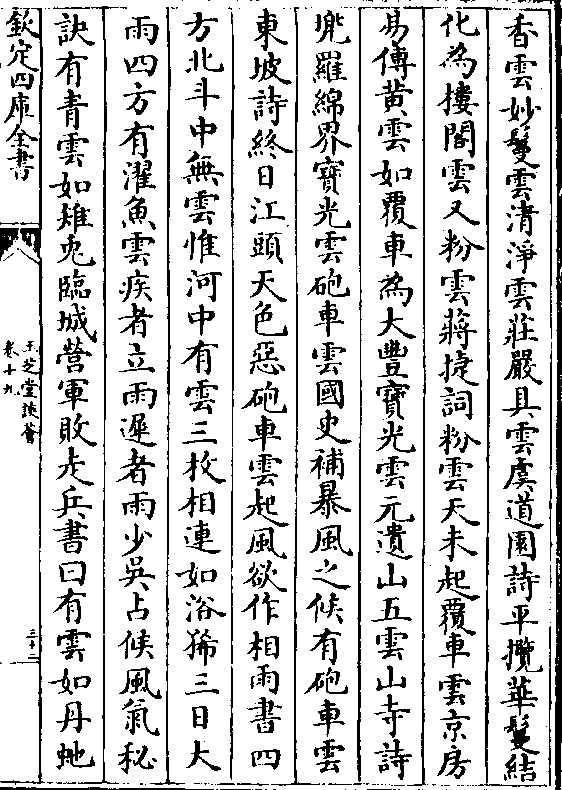 香雲妙鬘雲清淨雲莊嚴具雲虞道園詩平攬華鬘結
化為樓閣雲又粉雲蔣捷詞粉雲天未起覆車雲京房
易傳黄雲如覆車為大豐寶光雲元遺山五雲山寺詩
兠羅綿界寳光雲砲車雲國史補暴風之候有砲車雲
東坡詩終日江頭天色惡砲車雲起風欲作相雨書四
方北斗中無雲惟河中有雲三枚相連如浴豨三日大
雨四方有濯魚雲疾者立雨遲者雨少吳占候風氣秘
訣有青雲如雉兎臨城營軍敗走兵書曰有雲如丹虵
欽定四庫全書
玉芝堂談薈
卷十九
三十二